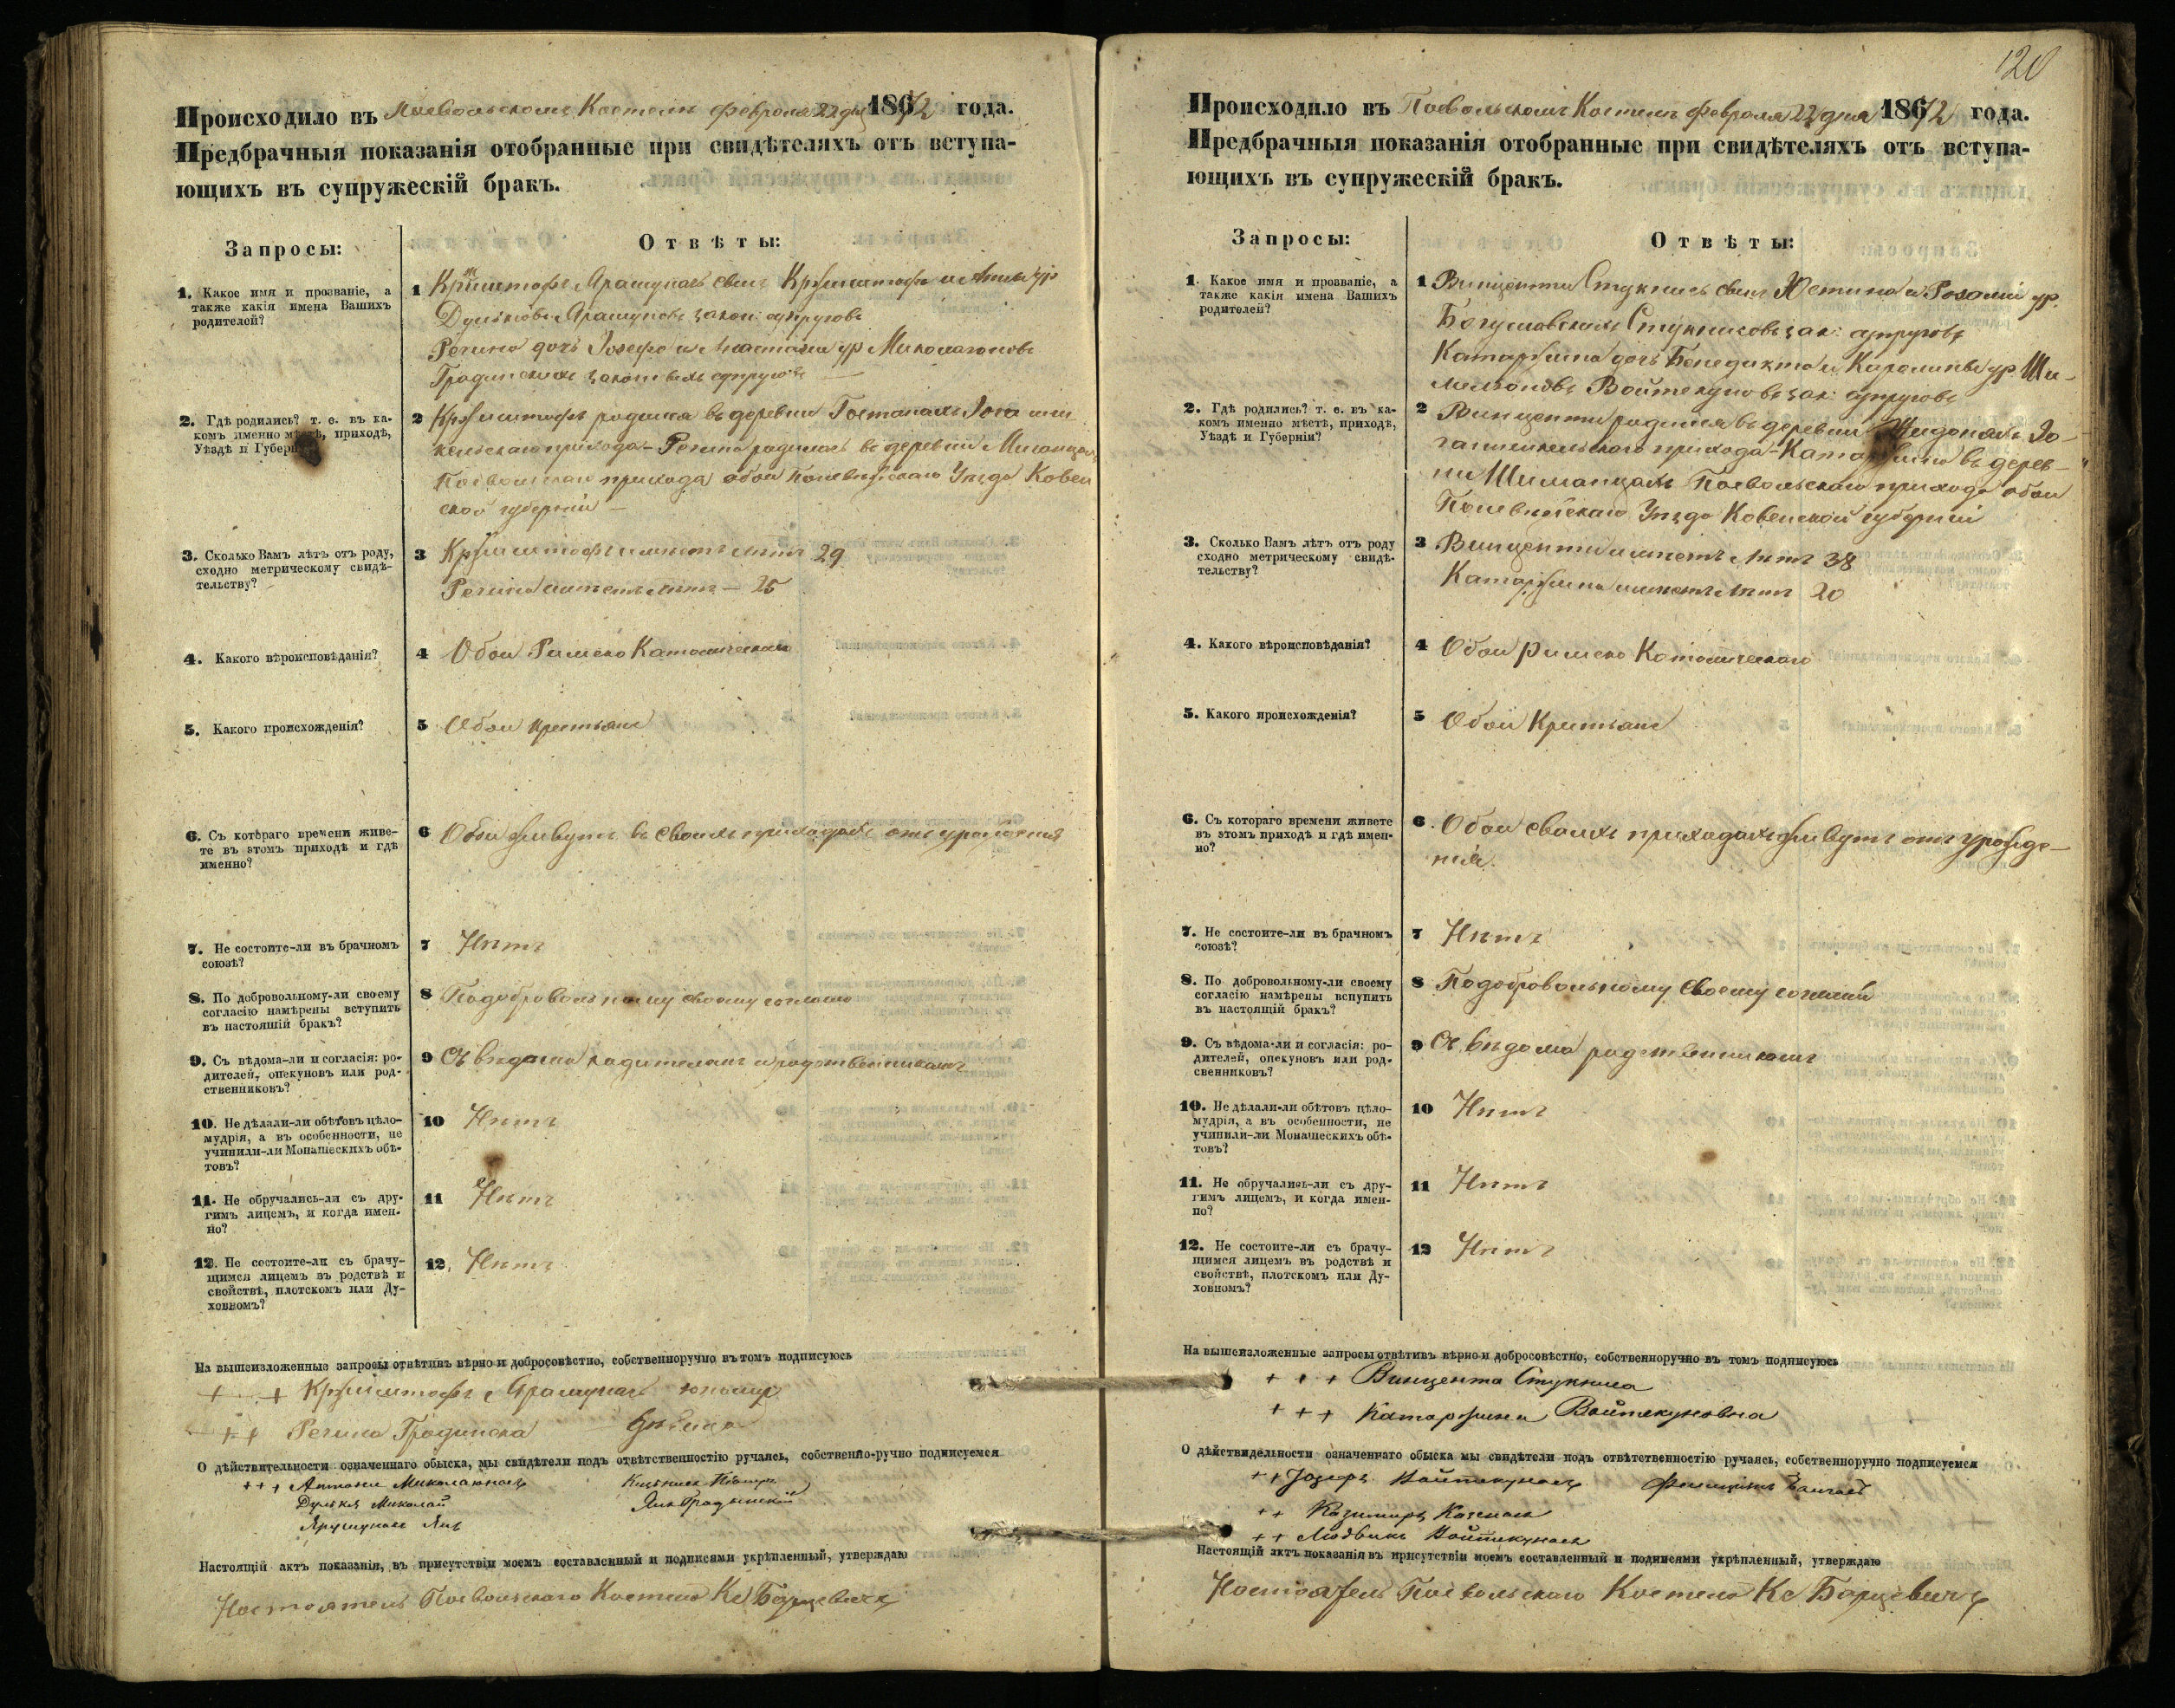 Происходило въ Посвольскомъ Костелѣ Февраля 22 дня 1872 года.
Предбрачныя показанія отобранные при свидѣтеляхъ отъ вступа-
ющихъ въ супружескій бракъ.
Запросы:
Отвѣты:
1. Какое имя и прозваніе, а
также какія имена Вашихъ
родителей?
1 Крыштофъ сынъ Крыштофа и Анны ур
закон: супруговъ
Регина дочь Іозефа и Анастазіи ур Миколаюновъ
Градинскихъ законныхъ супруговъ
2. Гдѣ родились? т. е. въ ка-
комъ именно мѣстѣ, приходѣ,
Уѣздѣ и Губерніи?
2 Крыштофъ родился въ деревни
прихода – Регина родилась въ деревни
Посвольскаго прихода обои Поневѣжскаго Уѣзда Ковен
ской губерніи –
3. Сколько Вамъ лѣтъ отъ роду,
сходно метрическому свидѣ-
тельству?
3 Крыштофъ имѣетъ лѣтъ 29
Регина имѣетъ лѣтъ – 25
4. Какого вѣроисповѣданія?
4 Обои Римско Католическаго
5. Какого происхожденія?
5 Обои крестьяне
6. Съ котораго времени живе-
те въ этомъ приходѣ и гдѣ
именно?
6 Обои живутъ въ своихъ приходахъ отъ урожденія
7. Не состоите-ли въ брачномъ
союзѣ?
7 Нѣтъ
8. По добровольному-ли своему
согласію намѣрены вступить
въ настоящій бракъ?
8 Подобровольному своему
9. Съ вѣдома-ли и согласія: ро-
дителей, опекуновъ или род-
ственниковъ?
9 Съ вѣдома
10. Не дѣлали-ли обѣтовъ цѣло-
мудрія, а въ особенности, не
учинили-ли Монашескихъ обѣ-
товъ?
10 Нѣтъ
11. Не обручались-ли съ дру-
гимъ лицемъ, и когда имен-
но?
11 Нѣтъ
12. Не состоите-ли съ брачу-
щимся лицемъ въ родствѣ и
свойствѣ, плотскомъ или Ду-
ховномъ?
12. Нѣтъ
На вышеизложенные запросы отвѣтивъ вѣрно и добросовѣстно, собственноручно въ томъ подписуюсь
+ + Крыштофъ юноша
+ + Регина Градинска дѣвица
О дѣйствительности означеннаго обыска, мы свидѣтели подъ отвѣтственностію ручаясь, собственно-ручно подписуемся
+++ Антони
Миколай
Янъ
Янъ Градынскій
Настоящій актъ показанія, въ присутствіи моемъ составленный и подписями укрѣпленный, утверждаю
Настоятель Посвольскаго Костела Кс Борцевичъ
120
Происходило въ Посвольскомъ Костелѣ Февраля 22 дня 1872 года.
Предбрачныя показанія отобранные при свидѣтеляхъ отъ вступа-
ющихъ въ супружескій бракъ.
Запросы:
Отвѣты:
1. Какое имя и прозваніе, а
также какія имена Вашихъ
родителей?
1 Винценти сынъ Юстина и Розаліи ур.
Богуславскихъ зак: супруговъ
Катаржина дочь Бенедикта и Каролины ур. Ши-
Войтекуновъ зак: супруговъ
2. Гдѣ родились? т. е. въ ка-
комъ именно мѣстѣ, приходѣ,
Уѣздѣ и Губерніи?
2 Винценти родился въ деревни
прихода – Катаржина въ дерев-
ни Шиманцахъ Посвольскаго прихода обои
Поневѣжскаго Уѣзда Ковенской губерніи
3. Сколько Вамъ лѣтъ отъ роду
сходно метрическому свидѣ-
тельству?
3 Винценти имѣетъ лѣтъ 38
Катаржина имѣетъ лѣтъ 20
4. Какого вѣроисповѣданія?
4 Обои римско Католическаго
5. Какого происхожденія?
5 Обои Крестьяне
6. Съ котораго времени живете
въ этомъ приходѣ и гдѣ имен-
но?
6. Обои своихъ приходахъ живутъ отъ урожде-
нія.
7. Не состоите-ли въ брачномъ
союзѣ?
7 Нѣтъ
8. По добровольному-ли своему
согласію намѣрены вспупить
въ настоящій бракъ?
8 Подобровольному своему
9. Съ вѣдома-ли и согласія: ро-
дителей, опекуновъ или род-
свенниковъ?
9 Съ вѣдома
10. Не дѣлали-ли обѣтовъ цѣло-
мудрія, а въ особенности, не
учинили-ли Монашескихъ обѣ-
товъ?
10 Нѣтъ
11. Не обручались-ли съ дру-
гимъ лицемъ, и когда имен-
но?
11 Нѣтъ
12. Не состоите-ли съ брачу-
щимся лицемъ въ родствѣ и
свойствѣ, плотскомъ или Ду-
ховномъ?
12 Нѣтъ
На вышеизложенные запросы отвѣтивъ вѣрно и добросовѣстно, собственноручно въ томъ подписуюсь
+ + + Винцента
+ + + Катаржина Войтекуновна
О дѣйствидельности означеннаго обыска мы свидѣтели подъ отвѣтственностію ручаясь, собственноручно подписуемся
++ Іозефъ Войтекунасъ
++ Казимиръ
++ Людвикъ Войтекунасъ
Настоящій актъ показанія въ присутствіи моемъ составленный и подписями укрѣпленный, утверждаю
Настоятель Посвольскаго Костела Кс Борцевичъ